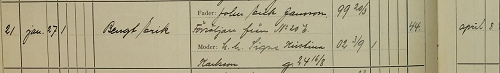 Fader: John Erik Jansson 99 29/5
21 jan. 27 1 Bengt Erik Försäljare från N:o 206 44 april
Moder: h. h. Signe Kristina 02 3/9 1
Karlsson g 24 16/8